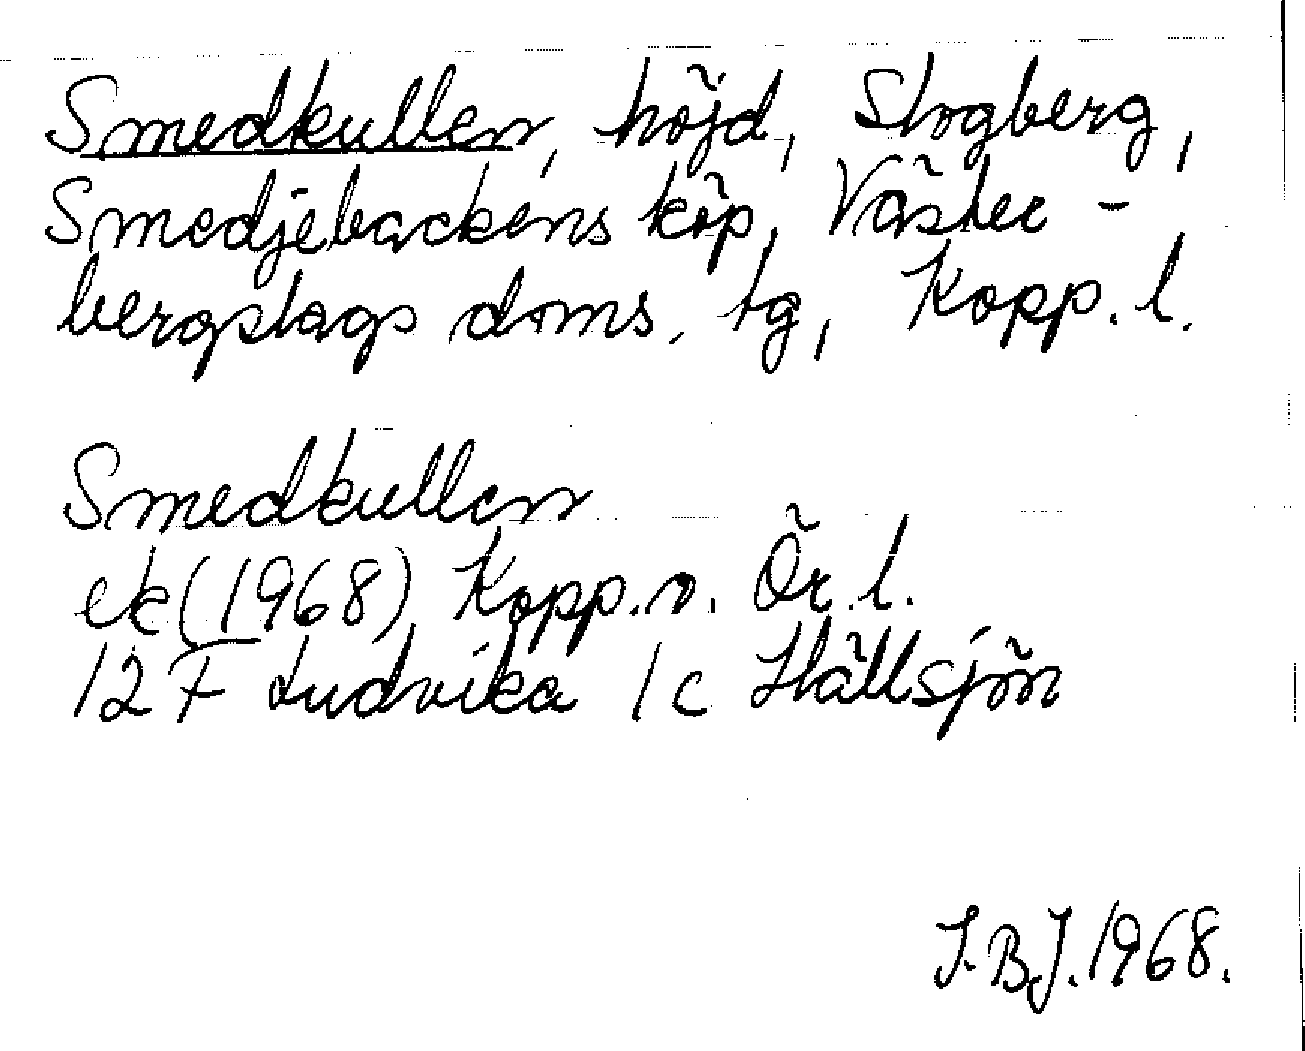 Smedkullen, höjd, Skogberg,
Smedjebackens köp, Väster-
bergslags doms. tg, Kopp. l.
Smedkullen
ek (1968) Kopp. o. Ör. l.
12 F Ludvika 1 c Hällsjön
I.B.J. 1968.